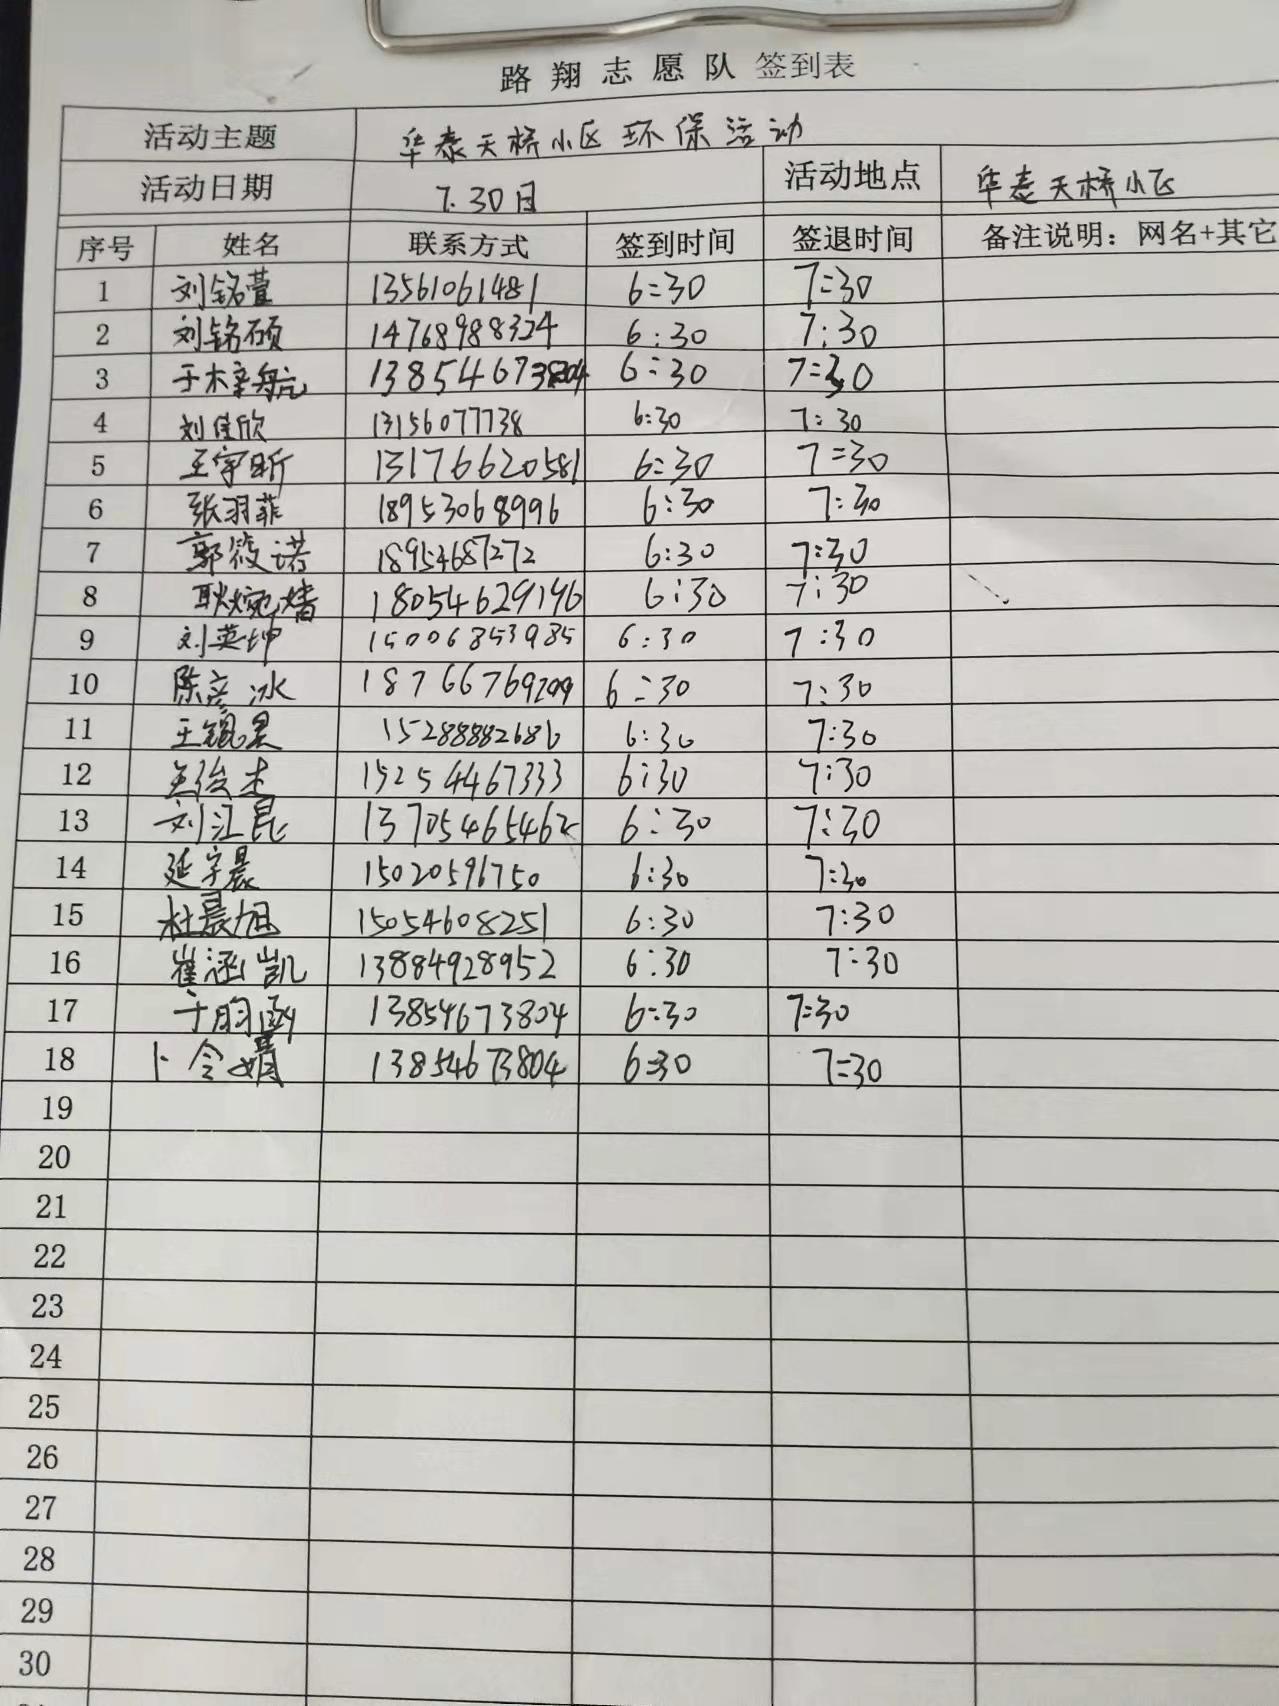 路翔志愿队签到表
活动主题 华泰天桥小区环保活动
活动日期 7.30日 活动地点 华泰天桥小区
序号 姓名 联系方式 签到时间 签退时间 备注说明：网名+其它
1 刘铭萱 13561061481 6:30 7:30
2 刘铭硕 14768988324 6:30 7:30
3 于木辛航 13854673804 6:30 7:30
4 刘佳欣 13156077738 6:30 7:30
5 王宇昕 13176620581 6:30 7:30
6 张羽菲 18953068996 6:30 7:30
7 郭筱诺 18954687272 6:30 7:30
8 耿婉婧 18054629196 6:30 7:30
9 刘英坤 15006853985 6:30 7:30
10 陈彦冰 18766769209 6:30 7:30
11 王锟昊 15288882686 6:30 7:30
12 俊杰 15254467333 6:30 7:30
13 刘江昆 13705465462 6:30 7:30
14 延宇晨 15020596750 6:30 7:30
15 杜晨旭 15054608251 6:30 7:30
16 崔涵凯 13884928952 6:30 7:30
17 于昀函 13854673804 6:30 7:30
18 卜令婧 13854673804 6:30 7:30
19
20
21
22
23
24
25
26
27
28
29
30